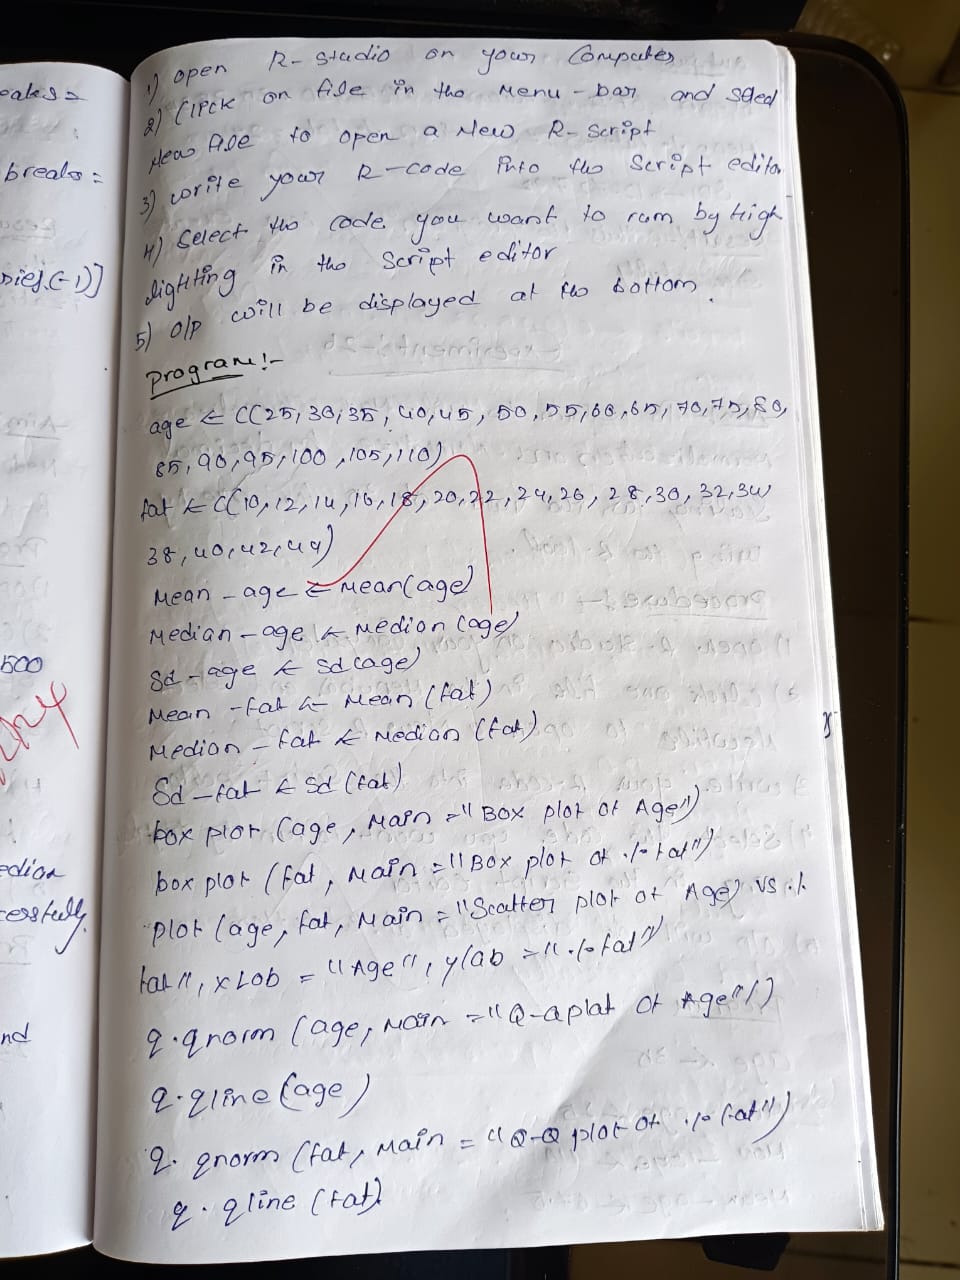 1) open R-studio on your Computer
2) Click on file in the Menu-bar and select
New file to open a New R-Script
3) write your R-code into the Script editor
4) Select the code you want to run by high
lighting in the Script editor
5) O/P will be displayed at the bottom.
program:-
age <- C(25,30,35,40,45,50,55,60,65,70,75,80,
85,90,95,100,105,110)
fat <- C(10,12,14,16,18,20,22,24,26,28,30,32,34
38,40,42,44)
Mean-age <- Mean(age)
Median-age <- Median(age)
Sd-age <- Sd(age)
Mean-fat <- Mean(fat)
Median-fat <- Median(fat)
Sd-fat <- Sd(fat)
box plot (age, Main="Box plot of Age")
box plot (fat, Main="Box plot of % fat")
plot (age, fat, Main="Scatter plot of Age) vs %
fat", xLab = "Age", ylab="% fat"
q.qnorm (age, Main="Q-Q plot of Age")
q.qline (age)
q.qnorm (fat, Main = "Q-Q plot of % fat")
q.qline (fat)
breaks=
500
edian
cessfully.
nd